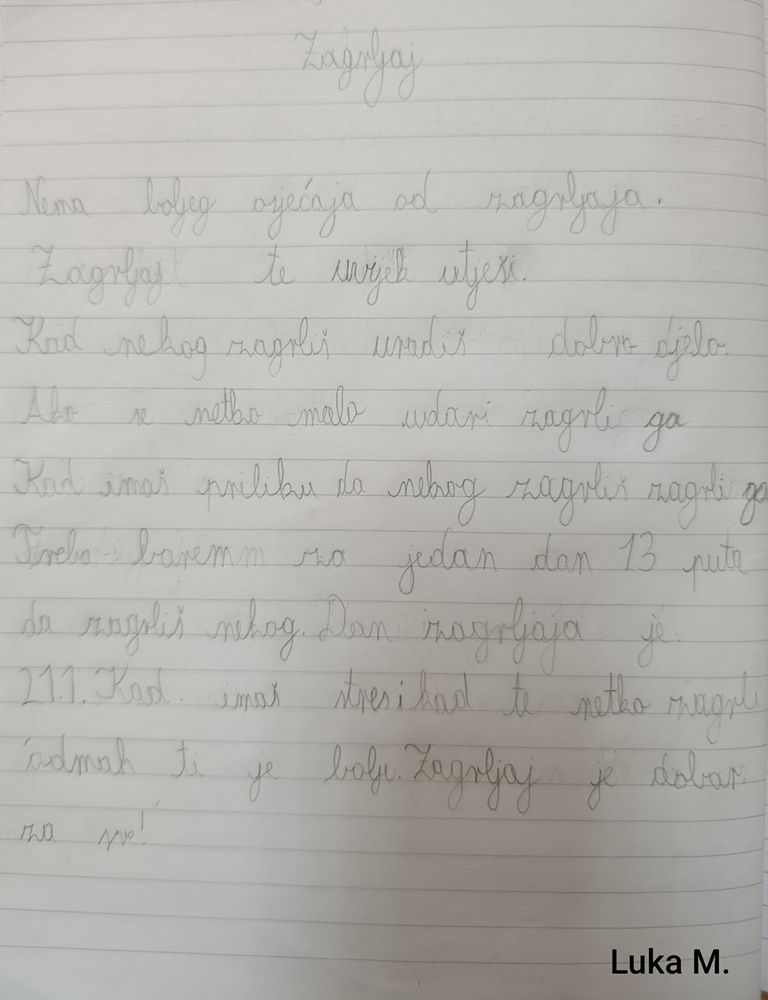 Zagrljaj
Nema boljeg osjećaja od zagrljaja.
Zagrljaj te uvijek utješi.
Kad nekog zagrliš uradiš dobro djelo.
Ako se netko malo udari zagrli ga
Kad imaš priliku da nekog zagrliš zagrli ga
Treba barem za jedan dan 13 puta
da zagrliš nekog. Dan zagrljaja je
21.1. Kad imaš stres i kad te netko zagrli
odmah ti je bolje. Zagrljaj je dobar
za sve!
Luka M.